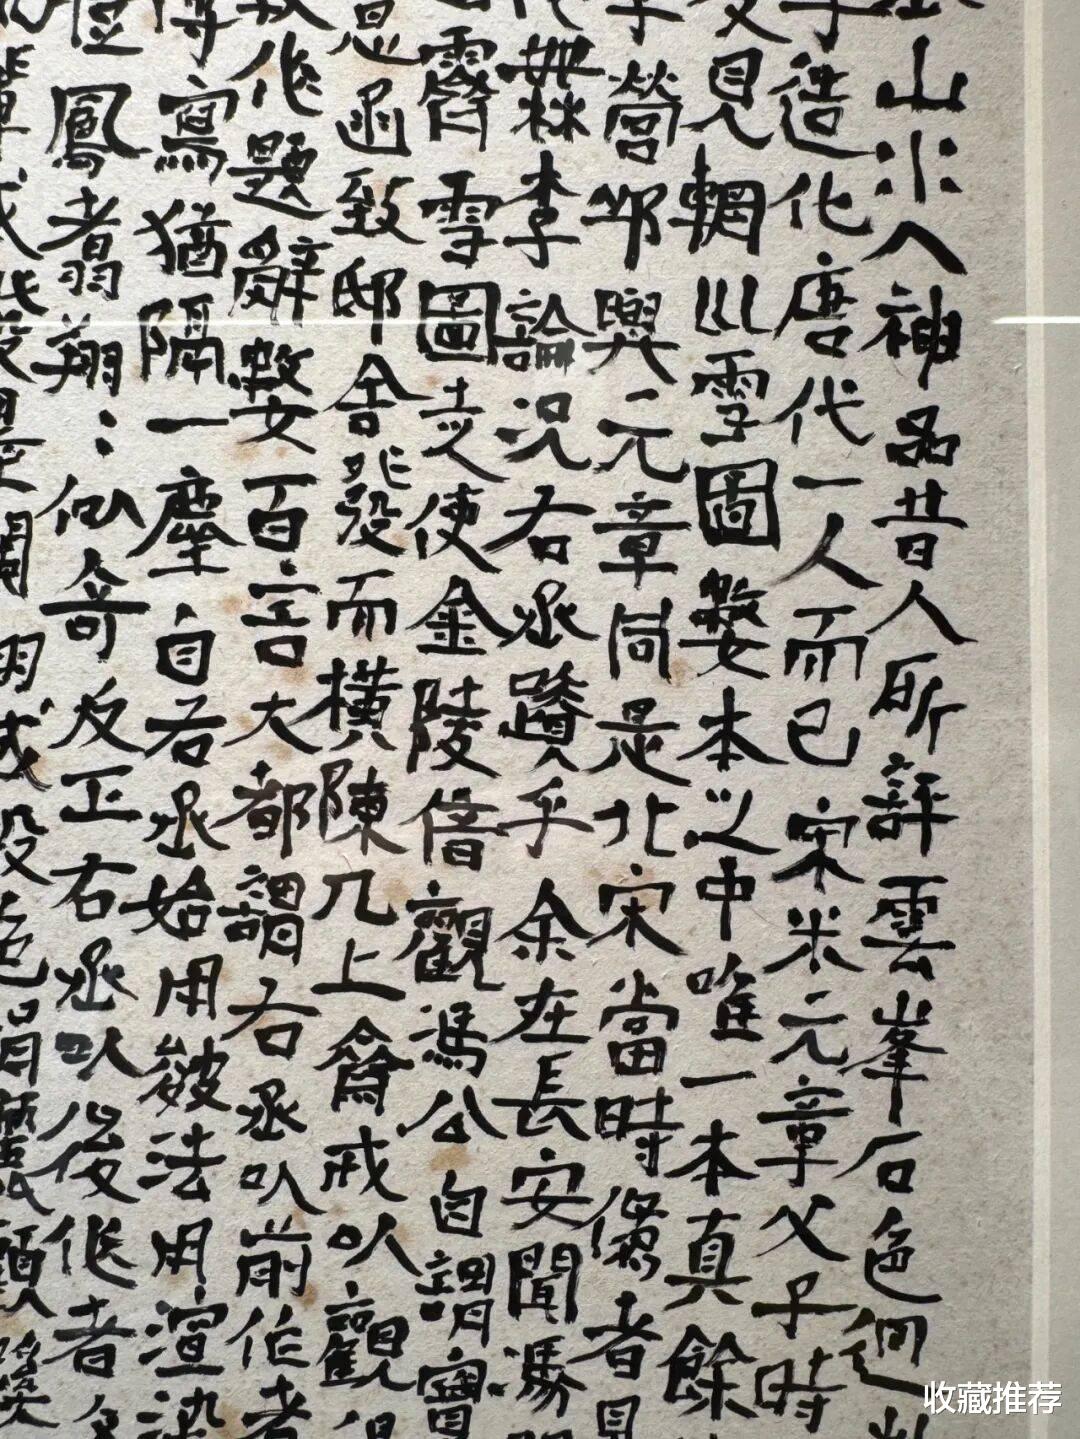 山水入神品昔人所評雲峯石色迥
子造化唐代一人而已宋米元章父子時
又見輞川雪圖數本以中唯一本真餘
營邱與元章同是北宋當時者見
無李論況右丞蹟乎余在長安聞馮
霽雪圖走使金陵借觀馮公自謂寶
意函致邸舍發而橫陳几上齋戒以觀
作題辭數百言大都謂右丞以前作者
傳寫猶隔一塵自右丞始用皴法用渲染
鳳翥翔似奇反正右丞以後作者
或設色娟麗顧
收藏推荐